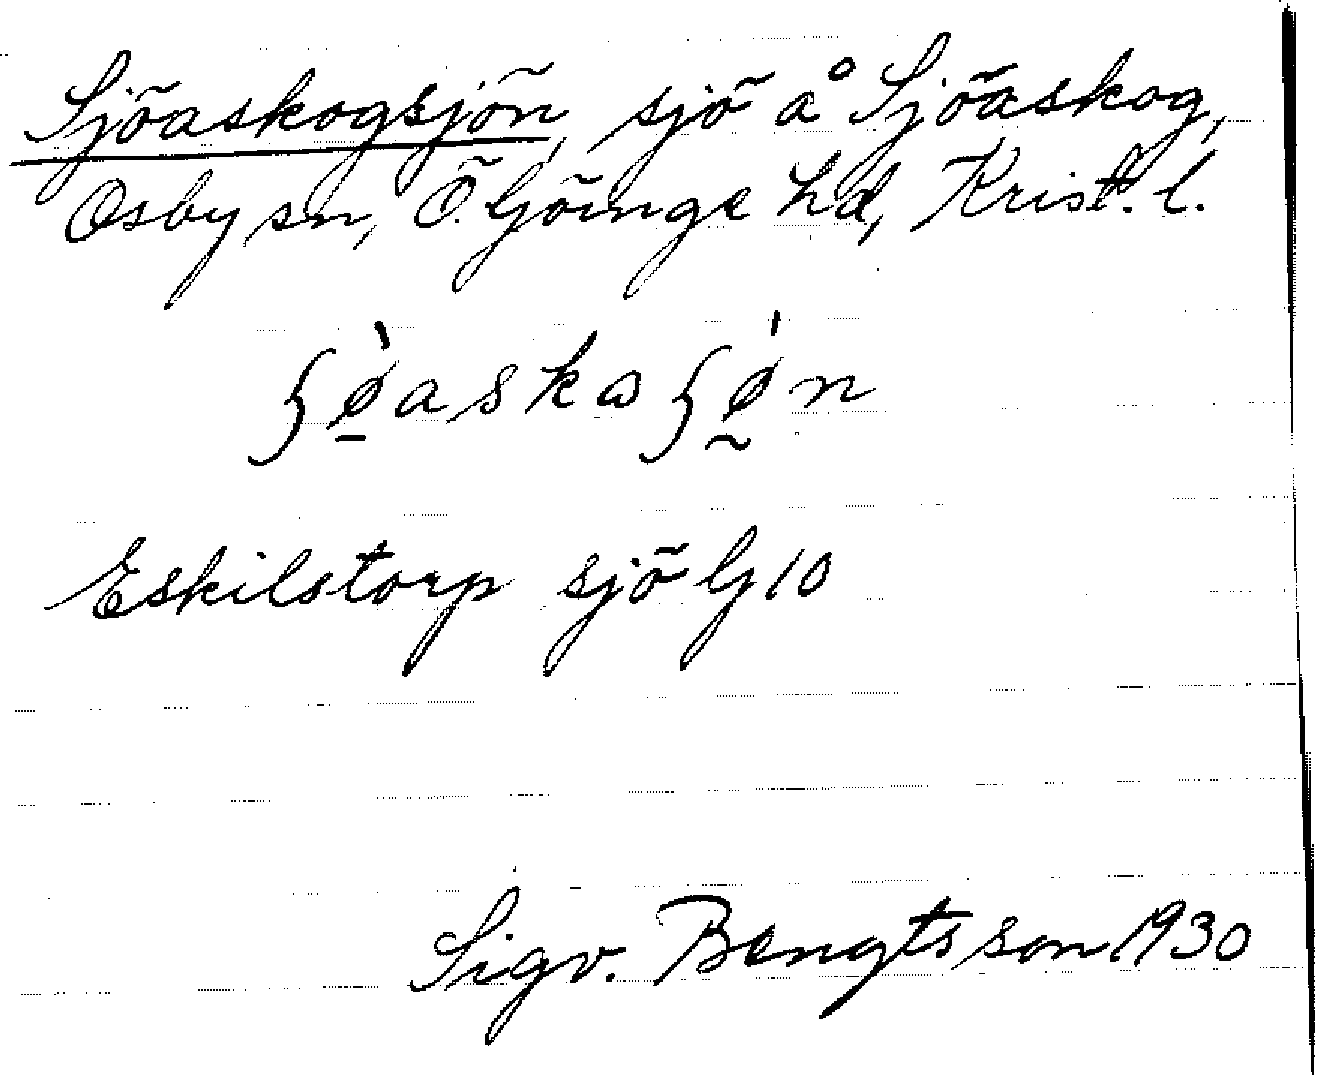 Sjöaskogsjön, sjö å Sjöaskog,
Osby sn, Ö. Göinge hd, Krist. l.
ʃø̠̀askaʃǿ̰n
Eskilstorp sjö G 10
Sigv. Bengtsson 1930